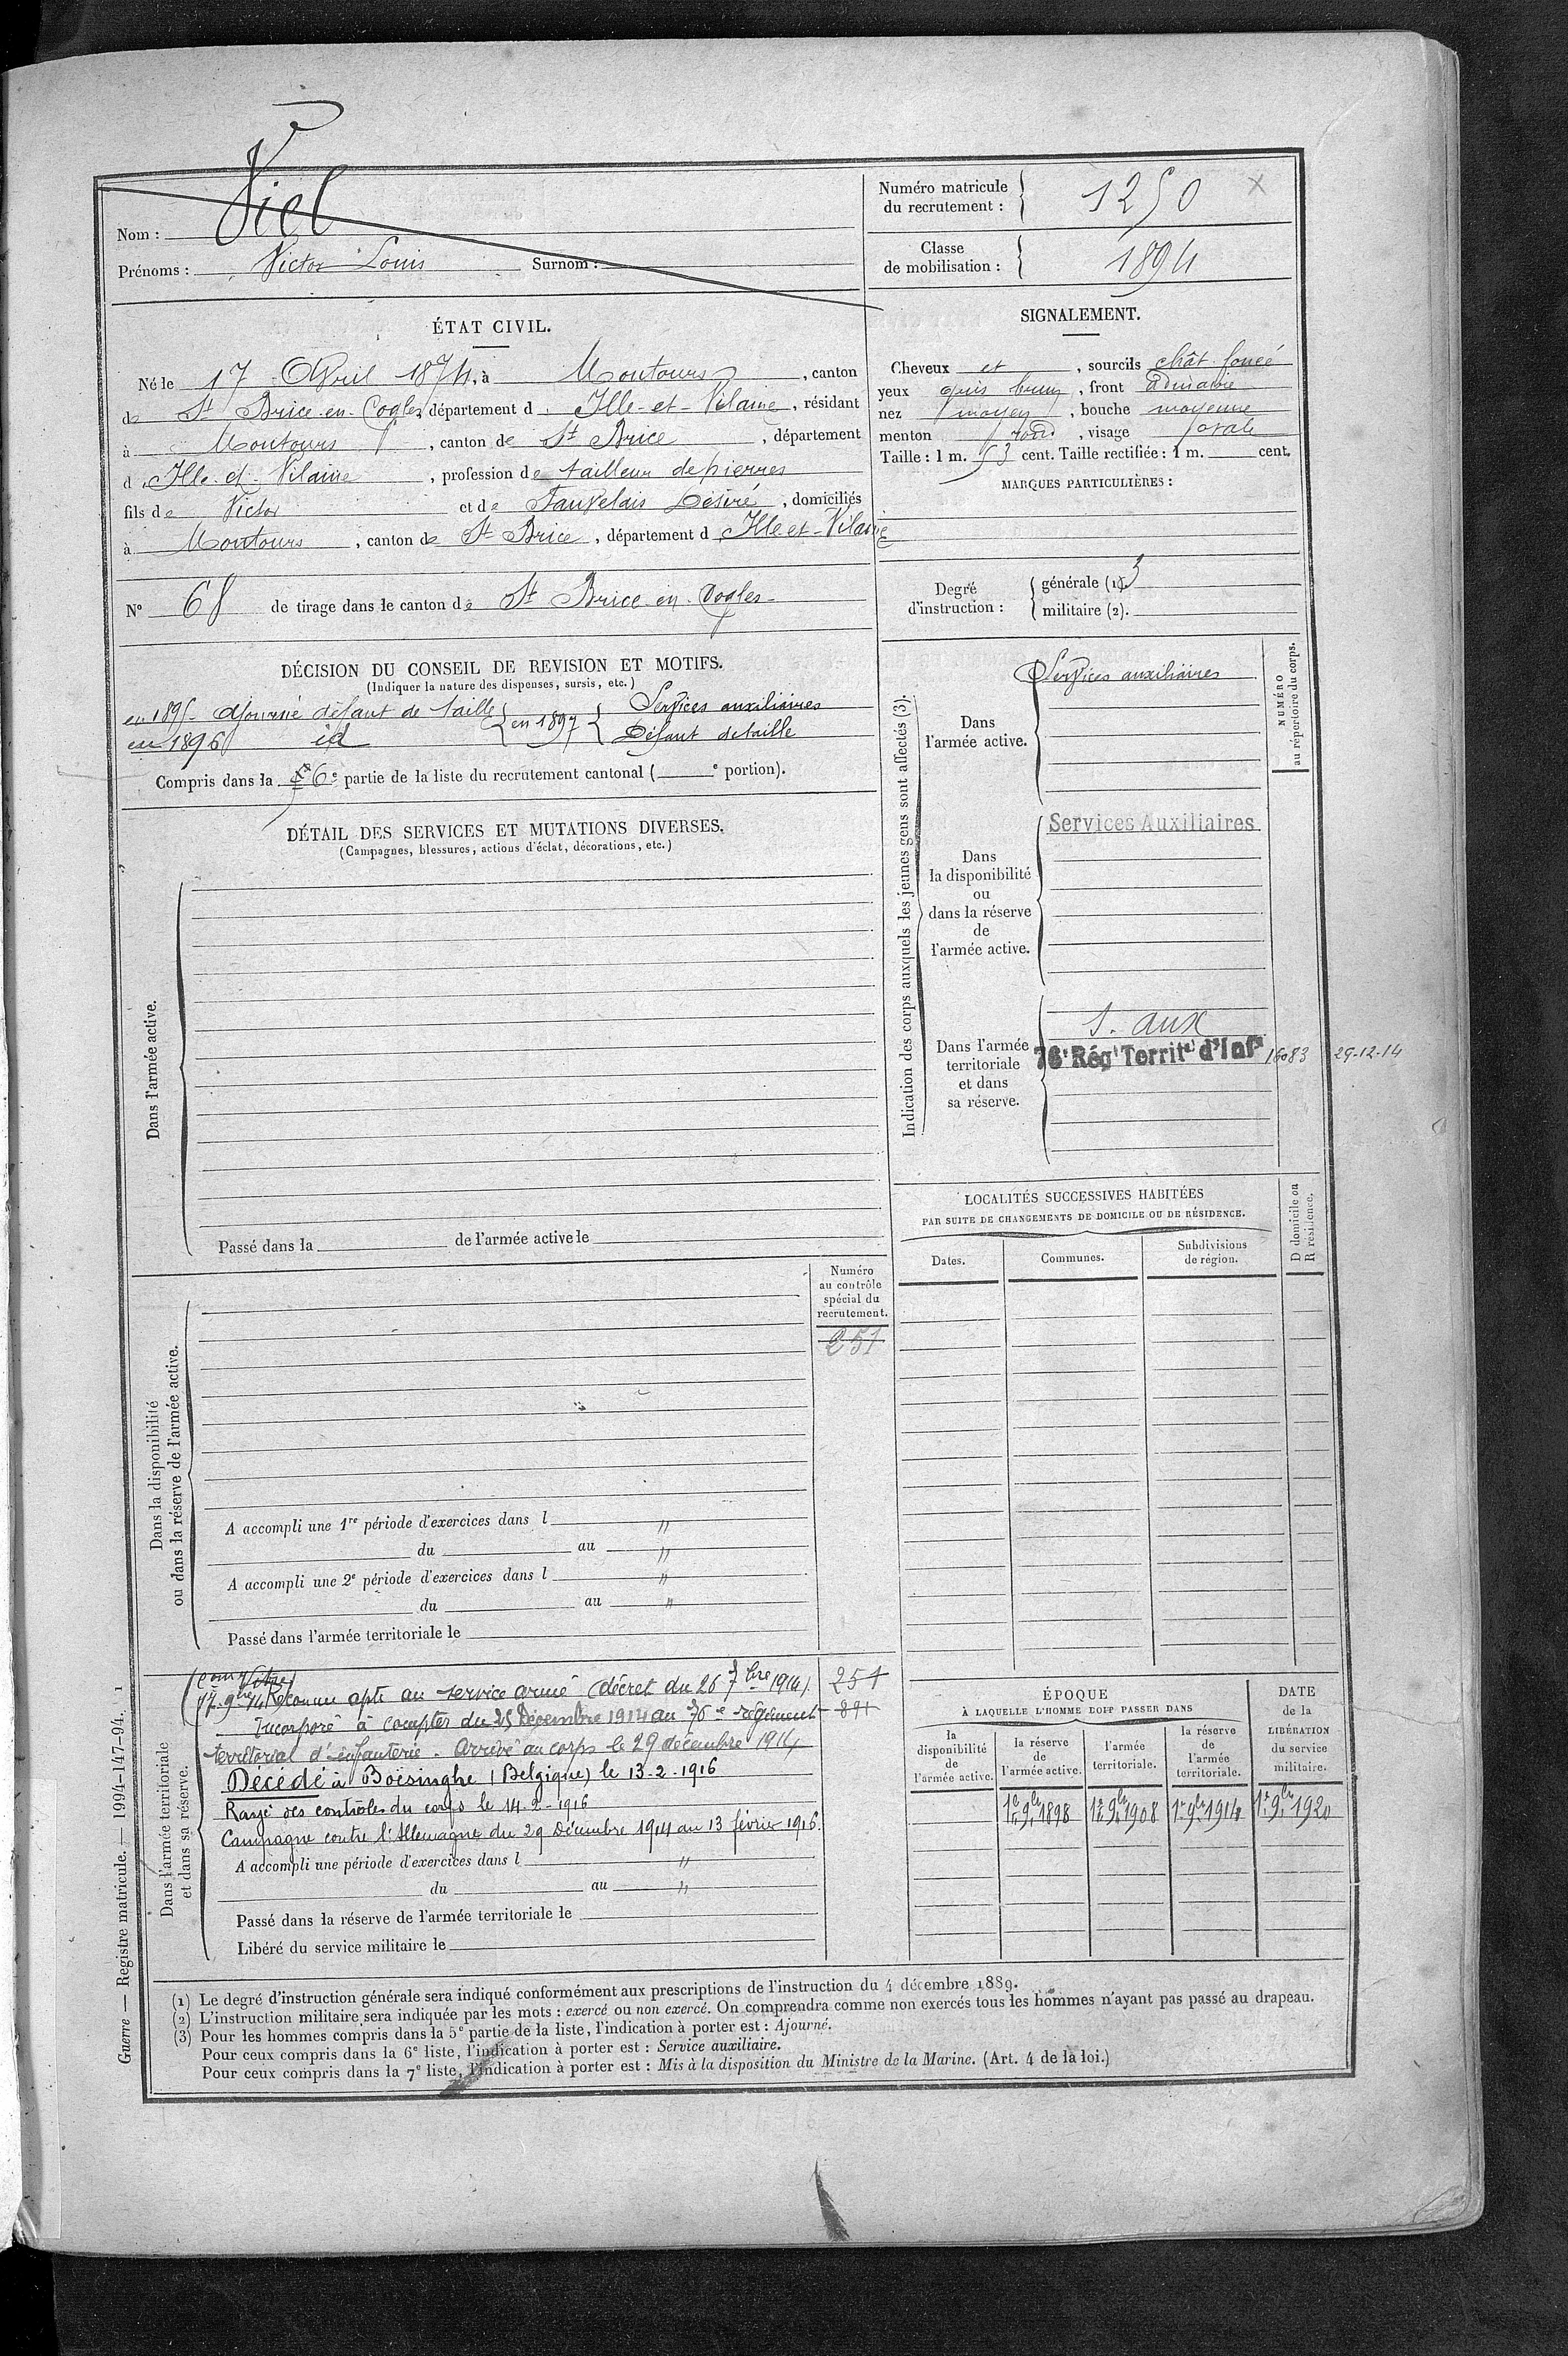 Nom : Viel
Prénoms : Victor Louis Surnom :
Numéro matricule du recrutement : 1250
Classe de mobilisation : 1894
ÉTAT CIVIL.
Né le 17 Avril 1874, à Montours, canton
de St Brice-en-Cogles département d Ille-et-Vilaine, résidant
à Montours, canton de St Brice, département
d Ille-et-Vilaine, profession de tailleur de pierres
fils de Victor et de Fauvelais Désiré, domiciliés
à Montours, canton de St Brice, département d Ille-et-Vilaine
N° 68 de tirage dans le canton de St Brice-en-Cogles
SIGNALEMENT.
Cheveux et, sourcils chât foncé
yeux gris brun, front ordinaire
nez moyen, bouche moyenne
menton rond, visage ovale
Taille : 1 m. 53 cent. Taille rectifiée : 1 m. cent.
MARQUES PARTICULIÈRES :
Degré d'instruction : générale (1). 3
militaire (2).
DÉCISION DU CONSEIL DE REVISION ET MOTIFS.
(Indiquer la nature des dispenses, sursis, etc.)
en 1895 Ajourné défaut de taille
en 1896 id
en 1897 Services auxiliaires
Défaut de taille
Compris dans la 6e partie de la liste du recrutement cantonal ( e portion).
DÉTAIL DES SERVICES ET MUTATIONS DIVERSES.
(Campagnes, blessures, actions d'éclat, décorations, etc.)
Dans l'armée active.
Passé dans la de l'armée active le
Indication des corps auxquels les jeunes gens sont affectés (3).
NUMÉRO au répertoire du corps.
Dans l'armée active.
Services auxiliaires
Dans la disponibilité ou dans la réserve de l'armée active.
Services Auxiliaires
Dans l'armée territoriale et dans sa réserve.
S. aux
76e Régt Territal d'Infie 16083 29-12-14
LOCALITÉS SUCCESSIVES HABITÉES
PAR SUITE DE CHANGEMENTS DE DOMICILE OU DE RÉSIDENCE.
Dates. Communes. Subdivisions de région.
D domicile ou R résidence.
Numéro au contrôle spécial du recrutement.
251
Dans la disponibilité ou dans la réserve de l'armée active.
A accompli une 1re période d'exercices dans l "
du au "
A accompli une 2e période d'exercices dans l "
du au "
Passé dans l'armée territoriale le
Dans l'armée territoriale et dans sa réserve.
(Comon Vitré)
17.9bre 14 Reconnu apte au service armé (décret du 26 7bre 1914). 251
Incorporé à compter du 25 Décembre 1914 au 76e régiment 891
territorial d'infanterie. Arrivé au corps le 29 décembre 1914
Décédé à Boësinghe (Belgique) le 13-2-1916
Rayé des contrôles du corps le 14-2-1916
Campagne contre l'Allemagne du 29 Décembre 1914 au 13 février 1916.
A accompli une période d'exercices dans l "
du au "
Passé dans la réserve de l'armée territoriale le
Libéré du service militaire le
ÉPOQUE
À LAQUELLE L'HOMME DOIT PASSER DANS
la disponibilité de l'armée active. la réserve de l'armée active. l'armée territoriale. la réserve de l'armée territoriale.
DATE de la LIBÉRATION du service militaire.
1er 9bre 1898 1er 9bre 1908 1er 9bre 1914 1er 9bre 1920
(1) Le degré d'instruction générale sera indiqué conformément aux prescriptions de l'instruction du 4 décembre 1889.
(2) L'instruction militaire sera indiquée par les mots : exercé ou non exercé. On comprendra comme non exercés tous les hommes n'ayant pas passé au drapeau.
(3) Pour les hommes compris dans la 5e partie de la liste, l'indication à porter est : Ajourné.
Pour ceux compris dans la 6e liste, l'indication à porter est : Service auxiliaire.
Pour ceux compris dans la 7e liste, l'indication à porter est : Mis à la disposition du Ministre de la Marine. (Art. 4 de la loi.)
Guerre — Registre matricule. — 1994-147-94.